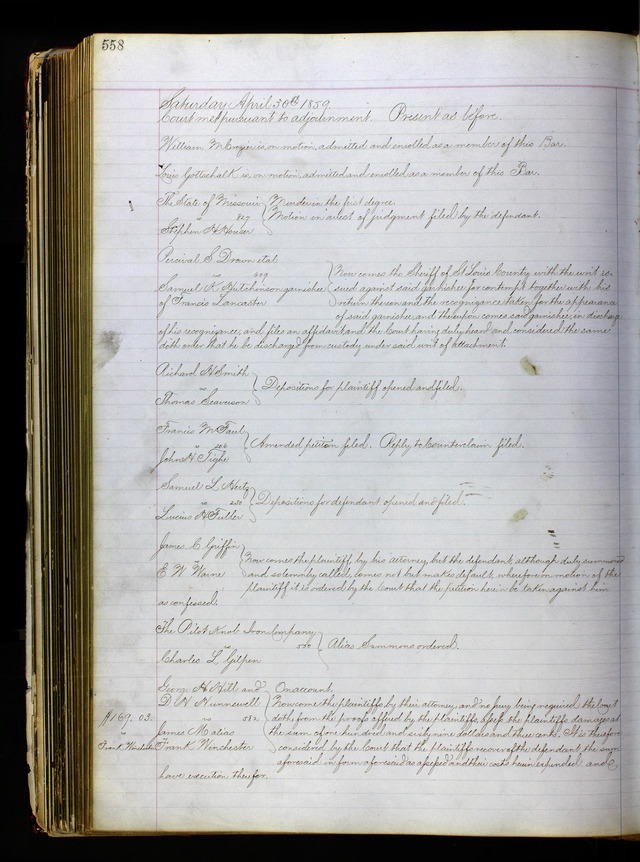 558
Saturday April 30th 1859
Court met pursuant to adjournment. Present as before.
William M is, on motion, admitted and enrolled as a member of this Bar.
Louis Gottschalk is, on motion, admitted and enrolled as a member of this Bar.
The State of Missouri } Murder in the first degree.
827 } Motion in arrest of judgment filed by the defendant.
Stephen H
Percival S Drown et al
vs
Samuel K Hutchinson garnishee } Now comes the Sheriff of St Louis County with the writ is-
sued against said garnishee for contempt together with his
of Francis Lancaster } return thereon and the recognizance taken for the appearance
of said garnishee, and thereupon comes said garnishee, in discharge
of his recognizance, and files an affidavit, and the Court having duly heard and considered the same
doth order that he be discharged from custody under said writ of attachment.
Richard H Smith
vs } Depositions for plaintiff opened and filed.
Thomas
Francis M Paul
vs } Amended petition filed. Reply to Counterclaim filed.
John H Tighe
Samuel L
vs 250 } Depositions for defendant opened and filed.
Lucius H Fuller
James C Griffin
vs } Now comes the plaintiff by his attorney, but the defendant, although duly summoned
E W Warne } and solemnly called, comes not but makes default, wherefore on motion of the
plaintiff it is ordered by the Court that the petition herein be taken against him
as confessed.
The Pilot Knob Iron Company
vs 550 } Alias Summons ordered.
Charles L Gilpin
George H Hill and On account.
D W Hunnewell } Now come the plaintiffs by their attorney, and no jury being required the Court
$169.03. vs 552 } doth, from the proofs offered by the plaintiffs, assess the plaintiffs damages at
James M alias } the sum of one hundred and sixty nine dollars and three cents. It is therefore
vs Frank Winchester Frank Winchester } considered by the Court that the plaintiffs recover of the defendant the sum
aforesaid in form aforesaid assessed and their costs herein expended and
have execution therefor.